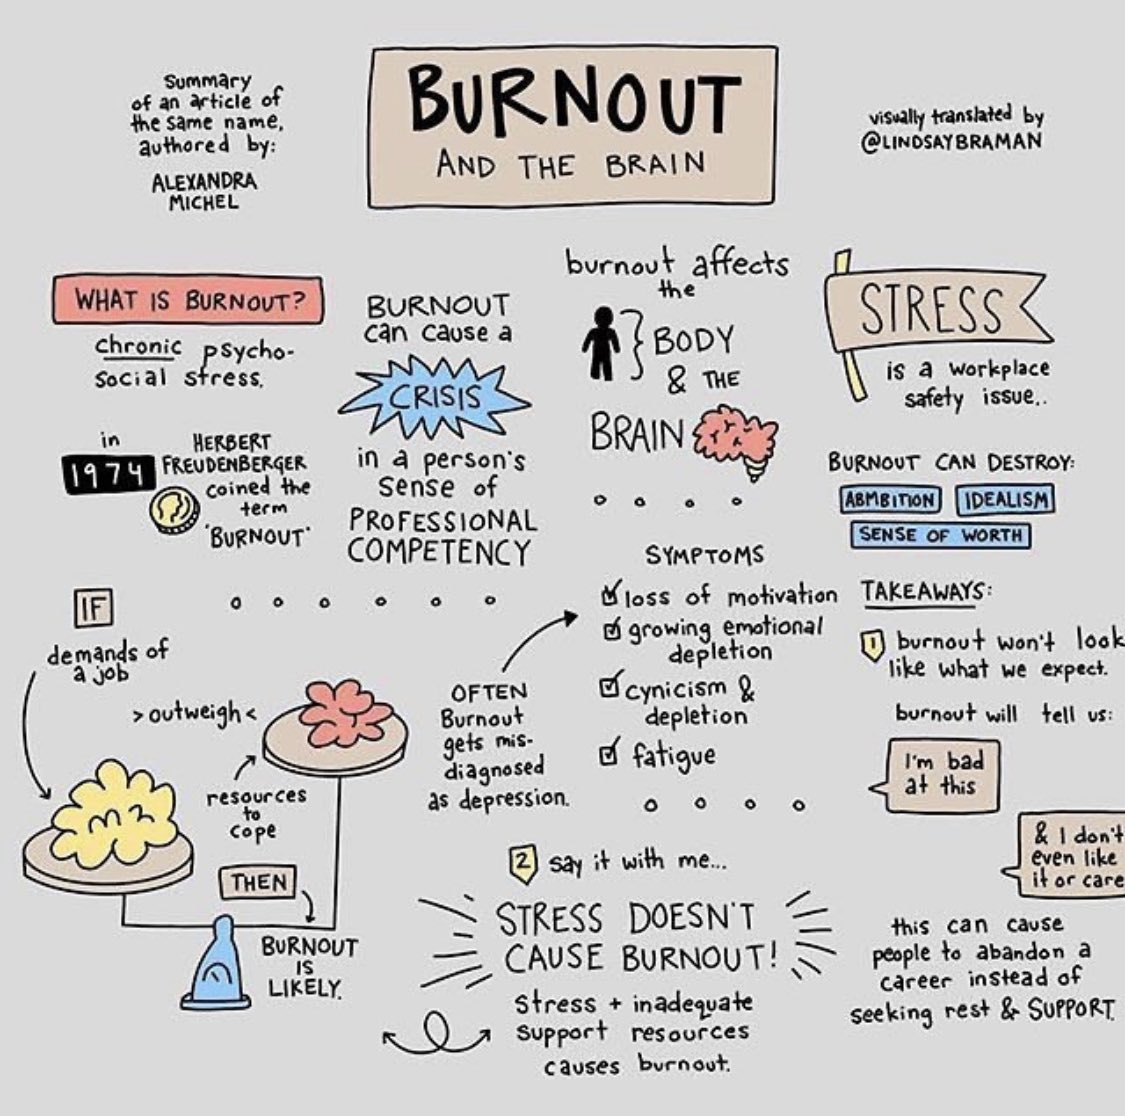 Summary
of an article of
the same name,
authored by:
ALEXANDRA
MICHEL
BURNOUT
AND THE BRAIN
visually translated by
@LINDSAYBRAMAN
WHAT IS BURNOUT?
chronic psycho-
social stress.
in
1974
HERBERT
FREUDENBERGER
coined the
term
'BURNOUT'
BURNOUT
can cause a
CRISIS
in a person's
sense of
PROFESSIONAL
COMPETENCY
burnout affects
the
BODY
& THE
BRAIN
STRESS
is a workplace
safety issue..
BURNOUT CAN DESTROY:
ABMBITION
IDEALISM
SENSE OF WORTH
IF
demands of
a job
>outweigh<
resources
to
cope
THEN
BURNOUT
IS
LIKELY.
OFTEN
Burnout
gets mis-
diagnosed
as depression.
SYMPTOMS
loss of motivation
growing emotional
depletion
cynicism &
depletion
fatigue
TAKEAWAYS:
1 burnout won't look
like what we expect.
burnout will tell us:
I'm bad
at this
& I don't
even like
it or care
this can cause
people to abandon a
career instead of
seeking rest & SUPPORT.
2 say it with me...
STRESS DOESN'T
CAUSE BURNOUT!
Stress + inadequate
support resources
causes burnout.